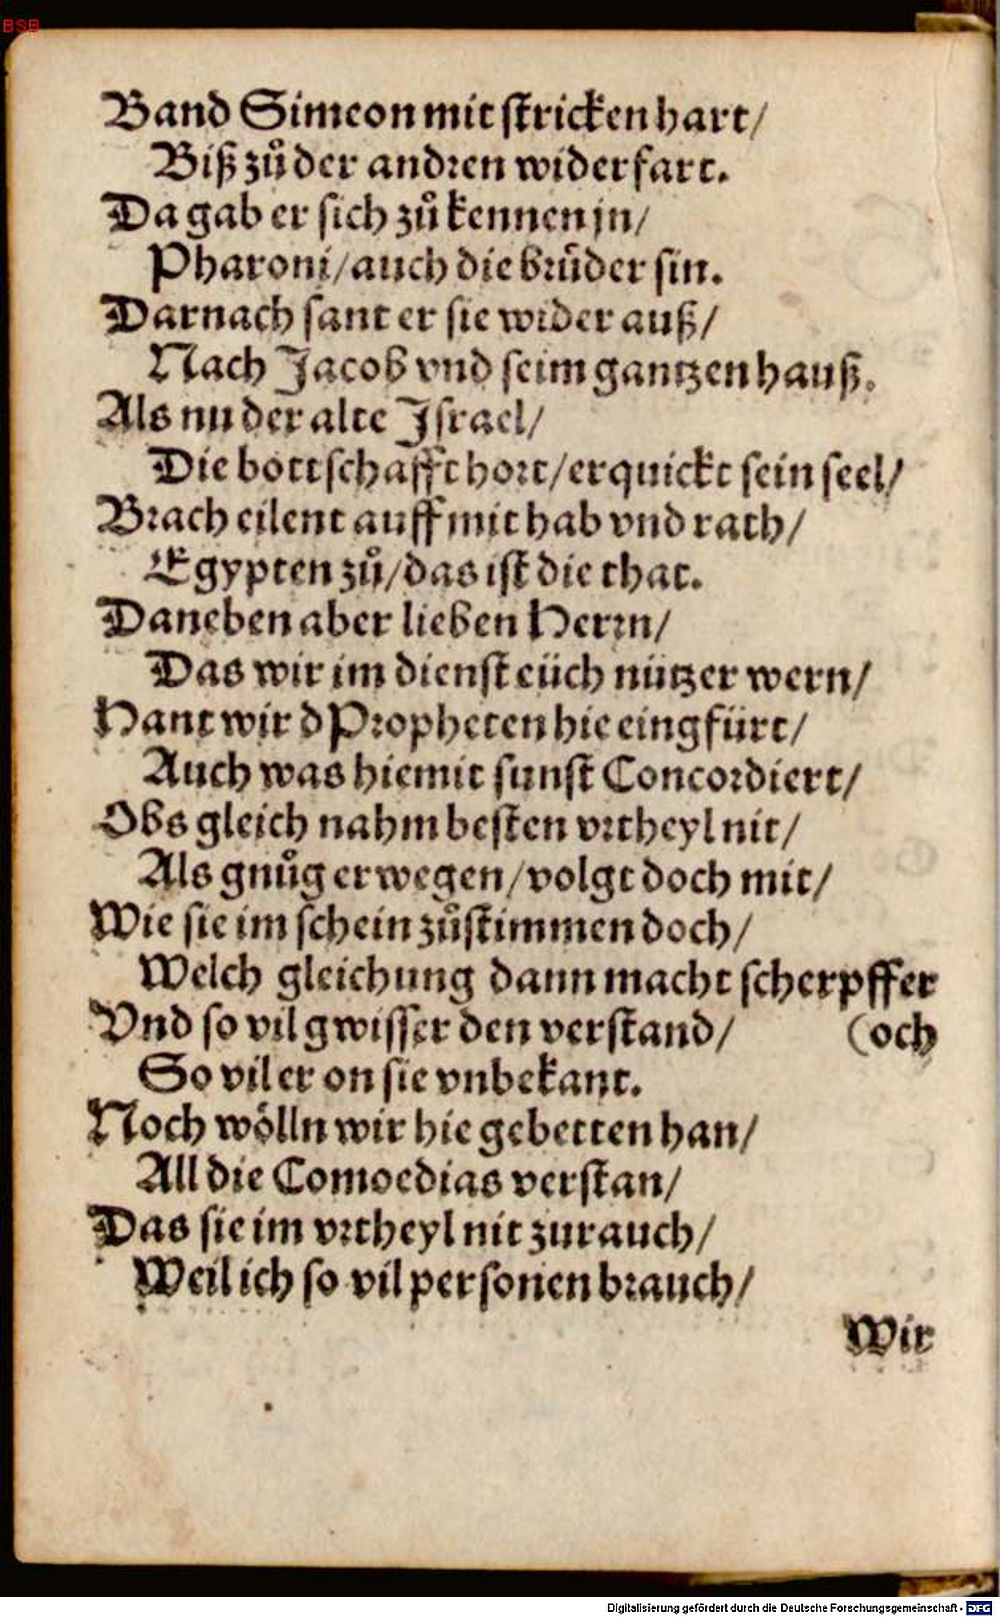 BSB
Band Simeon mit ſtricken hart/
Biß zů der andꝛen widerfart.
Da gab er ſich zů kennen jn/
Pharoni/auch die bꝛůder ſin.
Darnach ſant er ſie wider auß/
Nach Jacob vnd ſeim gantzen hauß.
Als nu der alte Jſrael/
Die bottſchafft hoꝛt/erquickt ſein ſeel/
Bꝛach eilent auff mit hab vnd rath/
Egypten zů/das iſt die that.
Daneben aber lieben Herꝛn/
Das wir im dienſt eüch nützer wern/
Hant wir d Pꝛopheten hie eingfürt/
Auch was hiemit ſunſt Concoꝛdiert/
Obs gleich nahm beſten vꝛtheyl nit/
Als gnůg erwegen/volgt doch mit/
Wie ſie im ſchein zůſtimmen doch/
Welch gleichung dann macht ſcherpffer
Vnd ſo vil gwiſſer den verſtand/ (och
So vil er on ſie vnbekant.
Noch wölln wir hie gebetten han/
All die Comoedias verſtan/
Das ſie im vꝛtheyl nit zu rauch/
Weil ich ſo vil perſonen bꝛauch/
Wir
Digitalisierung gefördert durch die Deutsche Forschungsgemeinschaft - DFG